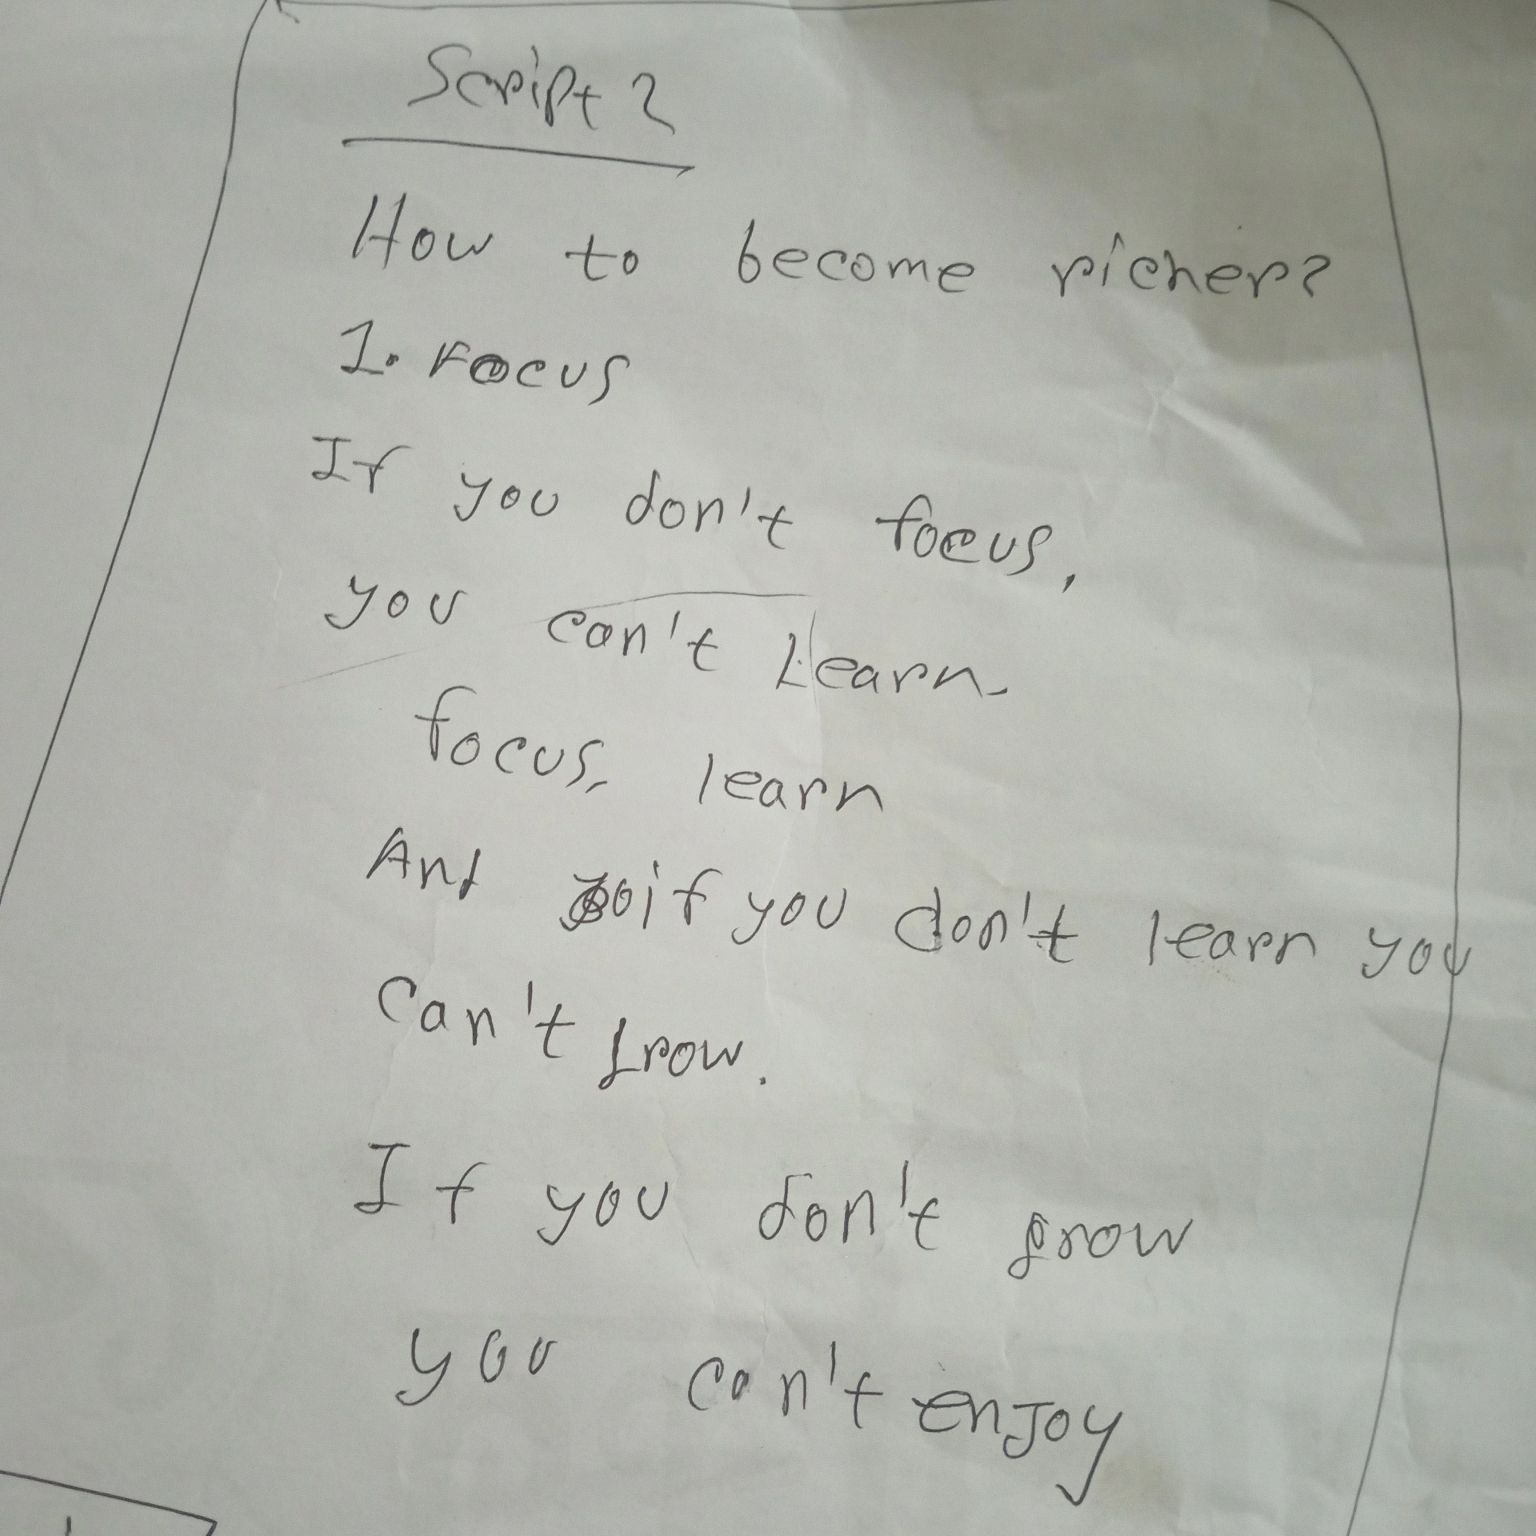 Script 2
How to become richer?
1. Focus
If you don't focus,
you can't Learn.
focus, learn
And if you don't learn you
can't grow.
If you don't grow
you can't enjoy